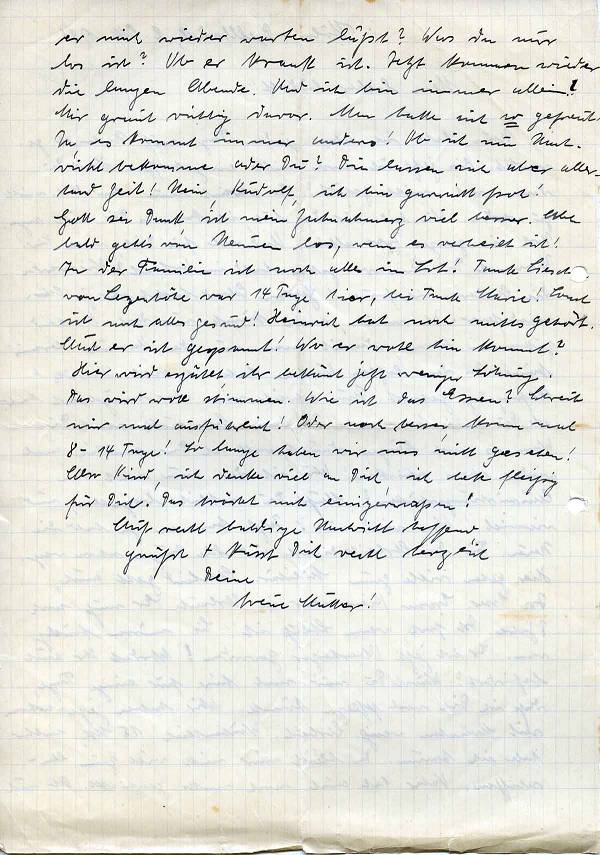 er mich wieder warten läßt? Was da nur
los ist? Ob er krank ist. Jetzt kommen wieder
die langen Abende. Und ich bin immer allein!
Mir graut richtig davor. Man hatte sich so gefreut.
Ja es kommt immer anders! Ob ich nun Nach-
richt bekomme oder Du? Die lassen sich aber aller-
hand Zeit! Nein Rudolf, ich bin gar nicht froh!
Gott sei Dank ist mein viel besser. Aber
bald geht's von Neuem los, wenn es verheilt ist!
In der Familie ist noch alles im Lot! Tante Liesch.
von war 14 Tage hier, bei Tante Marie! Sonst
ist noch alles gesund! Heinrich hat noch nichts gehört.
Auch er ist gespannt! Wo er wohl hin kommt?
Hier wird erzählt ihr bekämt jetzt weniger Löhnung.
Das wird wohl stimmen. Wie ist das Essen? Schreib
mir mal ausführlich! Oder noch besser, komm mal
8 – 14 Tage! So lange haben wir uns nicht gesehen!
Aber Kind, ich denke viel an Dich ich bete fleißig
für Dich. Das tröstet mich einigermaßen!
Auf recht baldige Nachricht hoffend
grüßt + küsst Dich recht herzlich
Deine
treue Mutter!